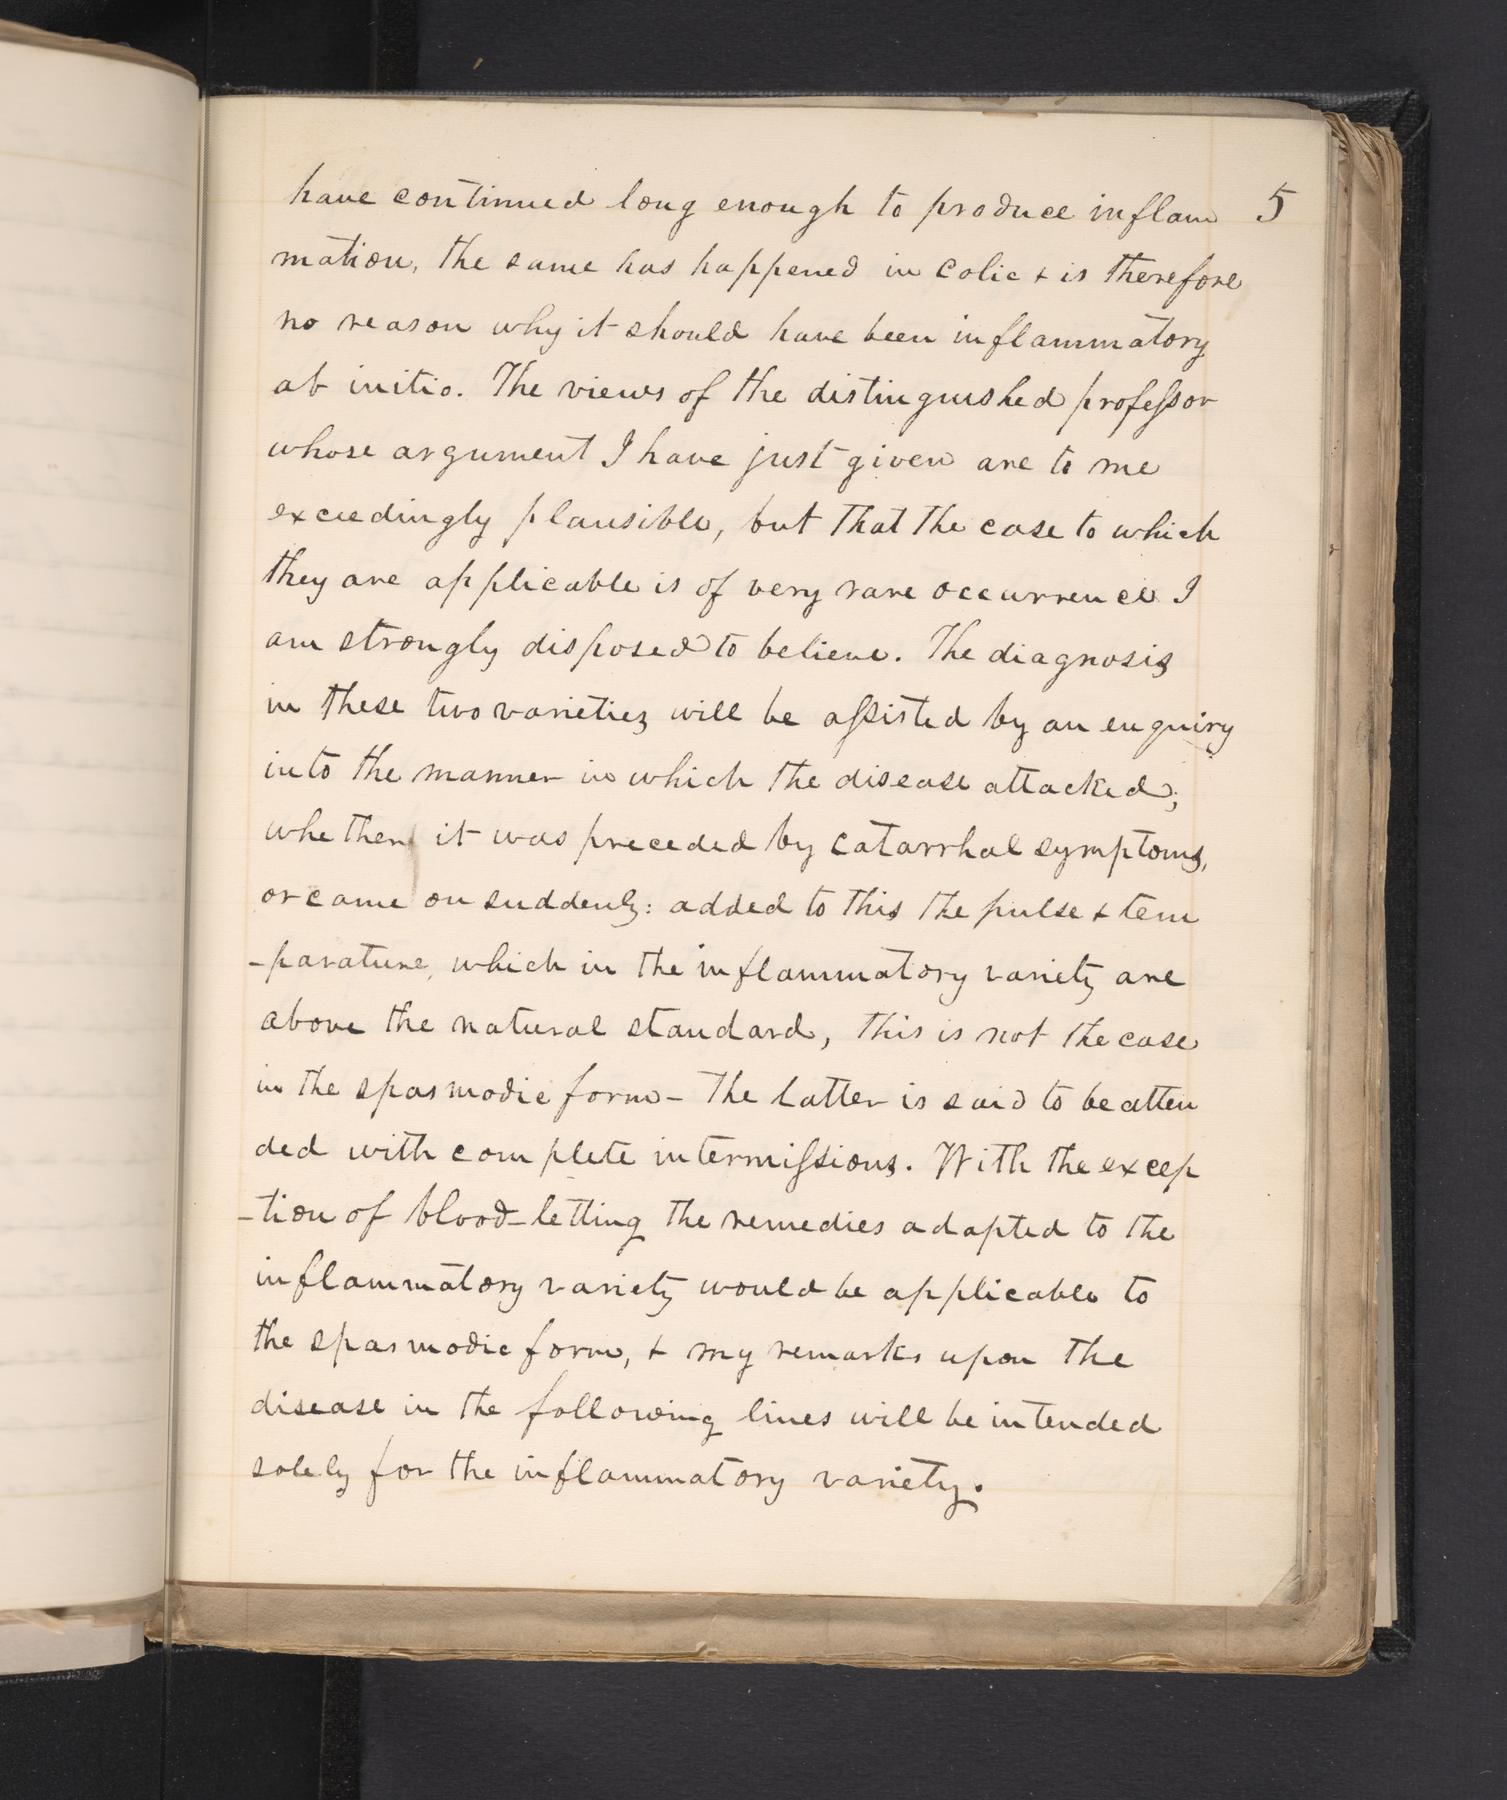 have continued long enough to produce inflam 5
mation, the same has happened in colic & is therefore
no reason why it should have been inflammatory
ab initio. The views of the distinguished professor
whose argument I have just given are to me
exceedingly plausible, but that the case to which
they are applicable is of very rare occurrence I
am strongly disposed to believe. The diagnosis
in these two varieties will be assisted by an enquiry
into the manner in which the disease attacked;
whether it was preceded by catarrhal symptoms,
or came on suddenly: added to this the pulse & tem
-parature, which in the inflammatory variety are
above the natural standard, this is not the case
in the spasmodic form - The latter is said to be atten
ded with complete intermissions. With the excep
-tion of blood-letting the remedies adapted to the
inflammatory variety would be applicable to
the spasmodic form, & my remarks upon the
disease in the following lines will be intended
solely for the inflammatory variety.